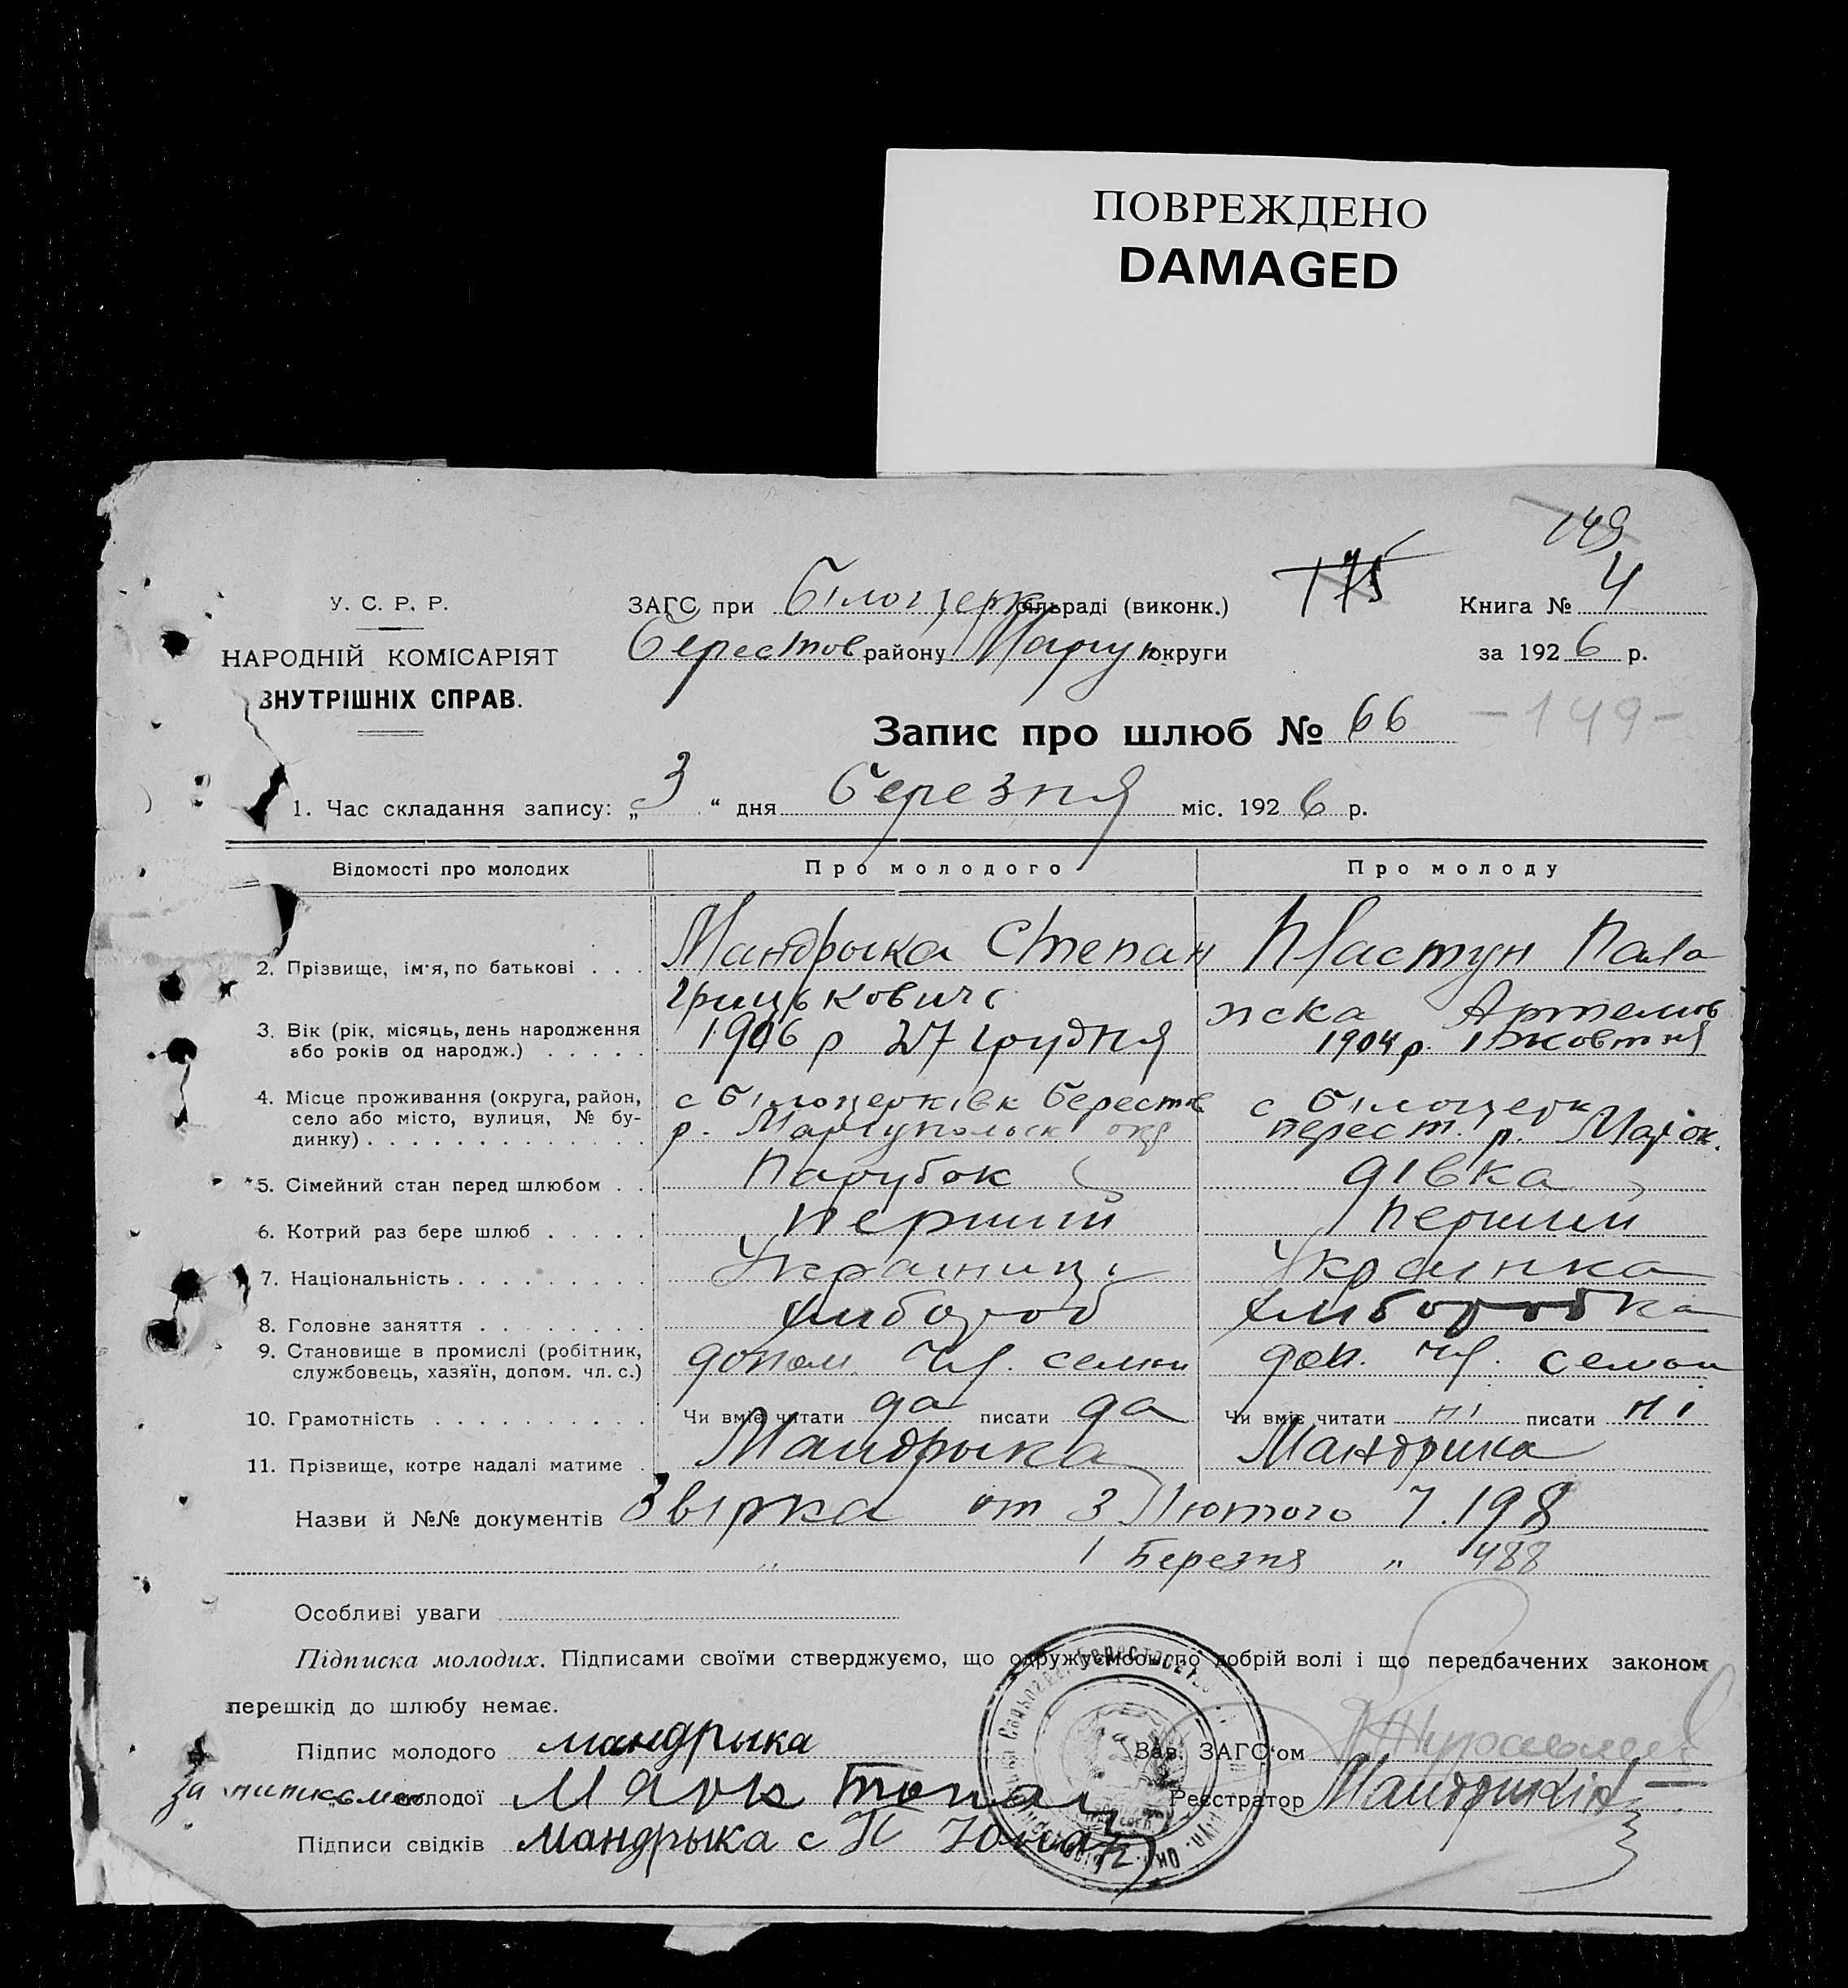 ПОВРЕЖДЕНО
DAMAGED
149
У. С. Р. Р.
ЗАГС при Білоцерк сільраді (виконк.)
175
Книга № 4
НАРОДНІЙ КОМІСАРІЯТ
Берестов району Маріуп округи
за 1926 р.
ВНУТРІШНІХ СПРАВ.
Запис про шлюб № 66
-149-
1. Час складання запису: „3“ дня Березня міс. 1926 р.
Відомості про молодих Про молодого Про молоду
2. Прізвище, ім'я, по батькові . . . Мандрыка Степан Пластун Пала
грицькович жска Артемов
3. Вік (рік, місяць, день народження 1906 р 27 грудня 1904 р. 1 жовтня
або років од народж.) . . . . .
4. Місце проживання (округа, район, с Білоцерківк Берестов с Білоцерк
село або місто, вулиця, № бу- р. Маріупольск окр перест. р. Марі ок.
динку) . . . . . . . . . . . . .
5. Сімейний стан перед шлюбом . . Парубок дівка
6. Котрий раз бере шлюб . . . . . перший перший
7. Національність . . . . . . . . . Украинка
8. Головне заняття . . . . . . . . хлибороб хлиборобка
9. Становище в промислі (робітник, допом. чл. семьи доп. чл. семьи
службовець, хазяїн, допом. чл. с.)
10. Грамотність . . . . . . . . . . Чи вміє читати да писати да Чи вміє читати ні писати ні
11. Прізвище, котре надалі матиме . Мандрыка Мандрика
Назви й №№ документів Звірка от 3 Лютого 7.198
„ 1 Березня „ 488
Особливі уваги
Підписка молодих. Підписами своїми стверджуємо, що одружуємось по добрій волі і що передбачених законом
перешкід до шлюбу немає.
Підпис молодого мандрыка Зав. ЗАГС'ом
За молодої Реєстратор
Підписи свідків мандрыка с